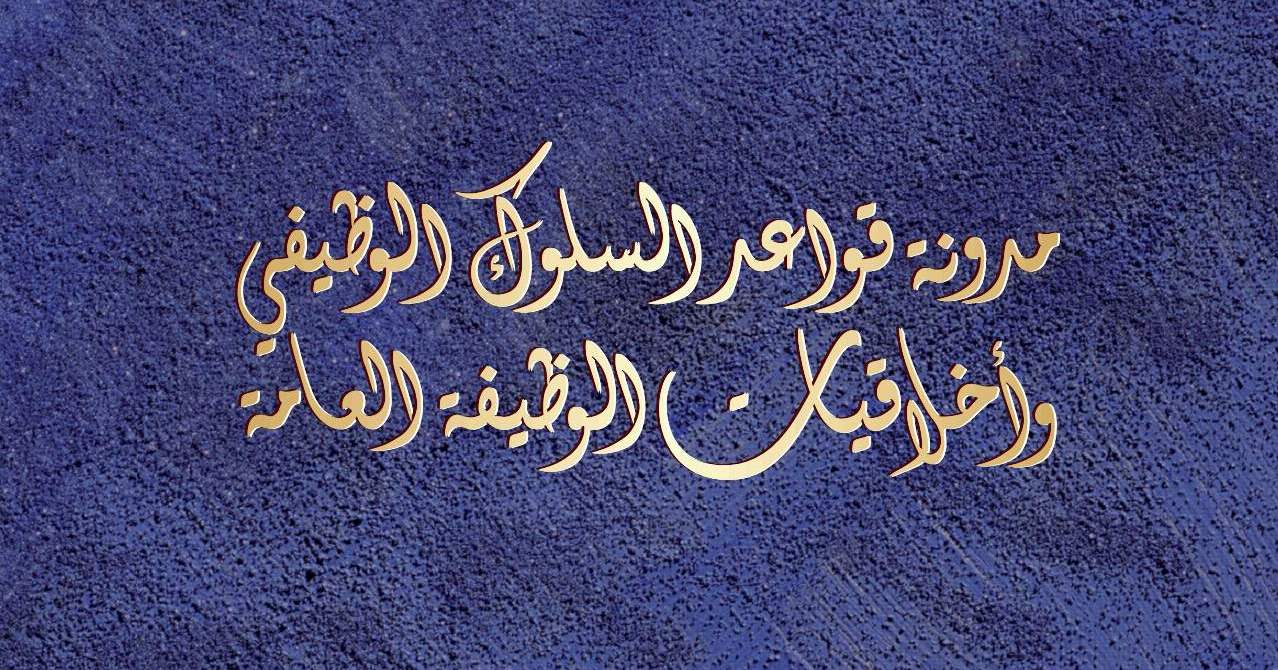 مدونة قواعد السلوك الوظيفي
وأخلاقيات الوظيفة العامة